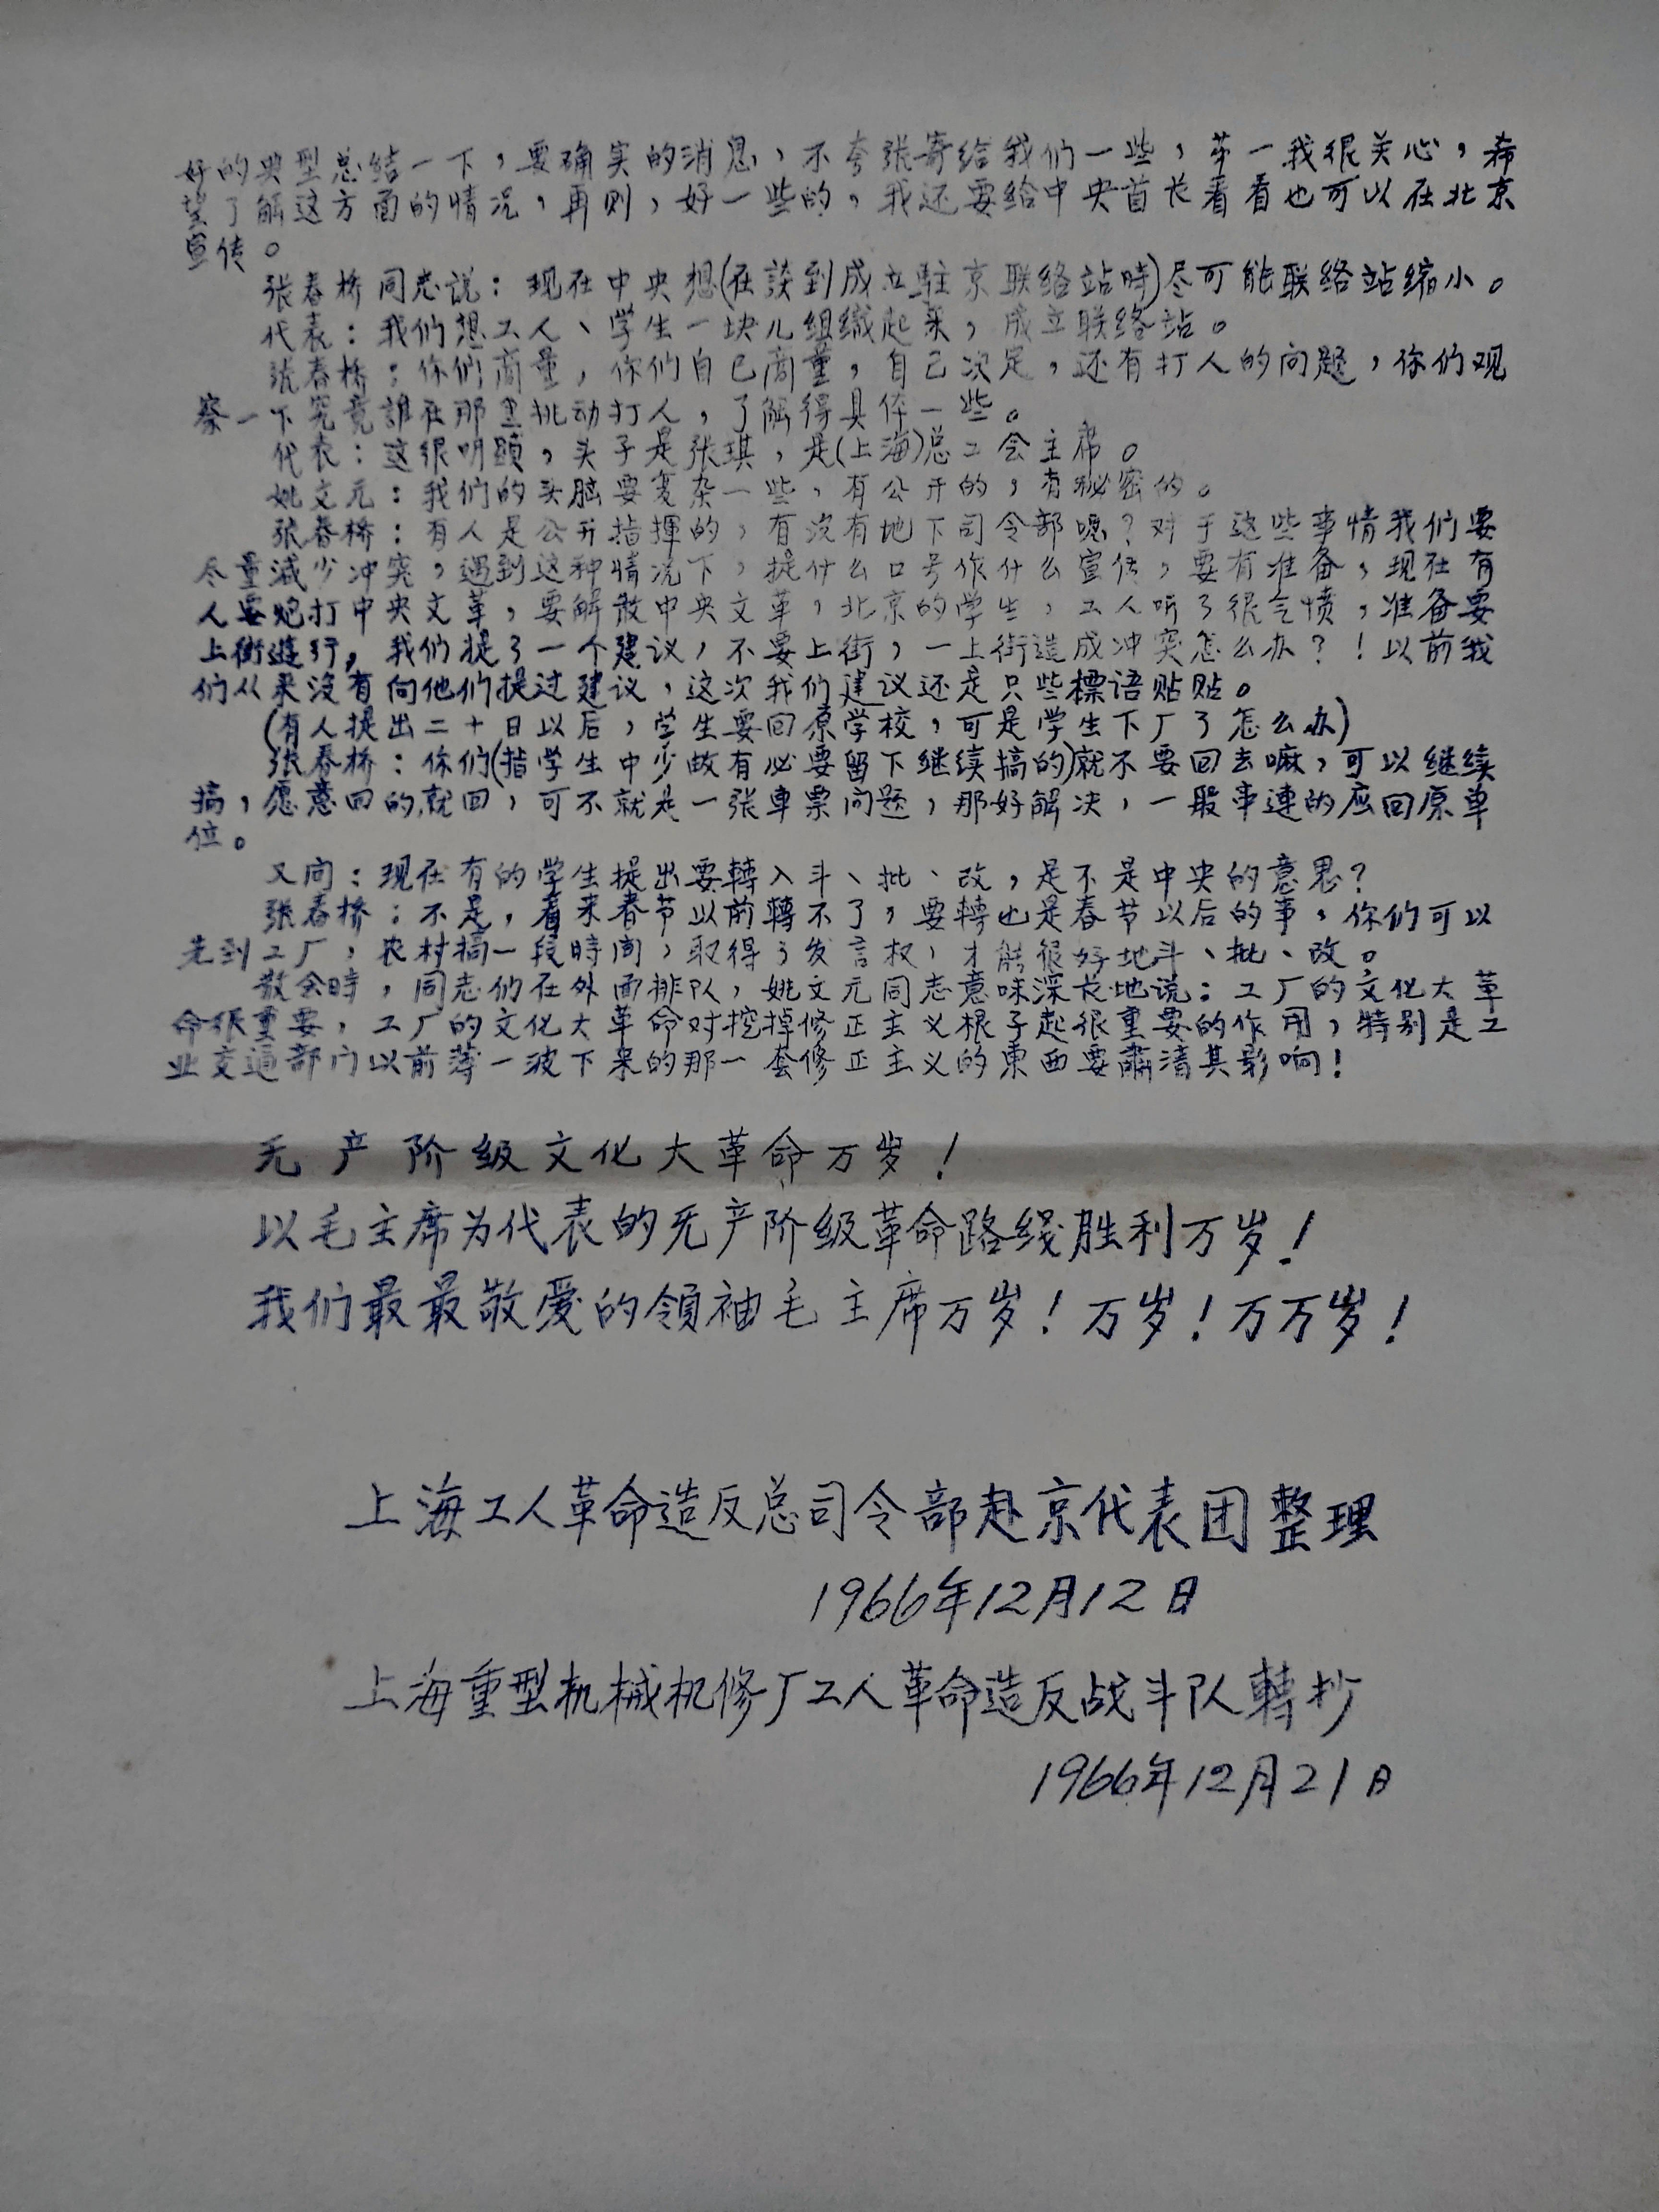 好的典型总结一下，要确实的消息，不夸张寄给我们一些，第一我很关心，希
望了解这方面的情况，再则，好一些的，我还要给中央首长看看也可以在北京
宣传。
张春桥同志说：现在中央想(在談到成立駐京联络站時)尽可能联络站缩小。
代表：我们想工人、学生一块儿组織起来，成立联络站。
张春桥：你们商量，你们自己商量，自己决定，还有打人的问题，你们观
察一下究竟誰在那里挑动打人，了解得具体一些。
代表：这很明顕，头子是张琪，是(上海)总工会主席。
姚文元：我们的头脑要复杂一些，有公开的，有秘密的。
张春桥：有人是公开指揮的，有没有地下司令部嗯？对于这些事情我们要
尽量減少冲突，遇到这种情况下，提什么口号作什么宣传，要有准备，现在有
人要炮打中央文革，要解散中央文革，北京的学生，工人听了很气愤，准备要
上街遊行，我们提了一个建议，不要上街，一上街造成冲突怎么办？！以前我
们从来没有向他们提过建议，这次我们建议还是只些標语贴贴。
(有人提出二十日以后，学生要回原学校，可是学生下厂了怎么办)
张春桥：你们(指学生中少数有必要留下继续搞的)就不要回去嘛，可以继续
搞，愿意回的就回，可不就是一张車票问题，那好解决，一般串連的应回原单
位。
又问：现在有的学生提出要轉入斗、批、改，是不是中央的意思？
张春桥：不是，看来春节以前轉不了，要轉也是春节以后的事，你们可以
先到工厂，农村搞一段時间，取得了发言权，才能很好地斗、批、改。
散会時，同志们在外面排队，姚文元同志意味深长地说：工厂的文化大革
命很重要，工厂的文化大革命对挖掉修正主义根子起很重要的作用，特别是工
业交通部门以前薄一波下来的那一套修正主义的東西要肅清其影响！
无产阶级文化大革命万岁！
以毛主席为代表的无产阶级革命路线胜利万岁！
我们最最敬爱的領袖毛主席万岁！万岁！万万岁！
上海工人革命造反总司令部赴京代表团整理
1966年12月12日
上海重型机械机修厂工人革命造反战斗队轉抄
1966年12月21日